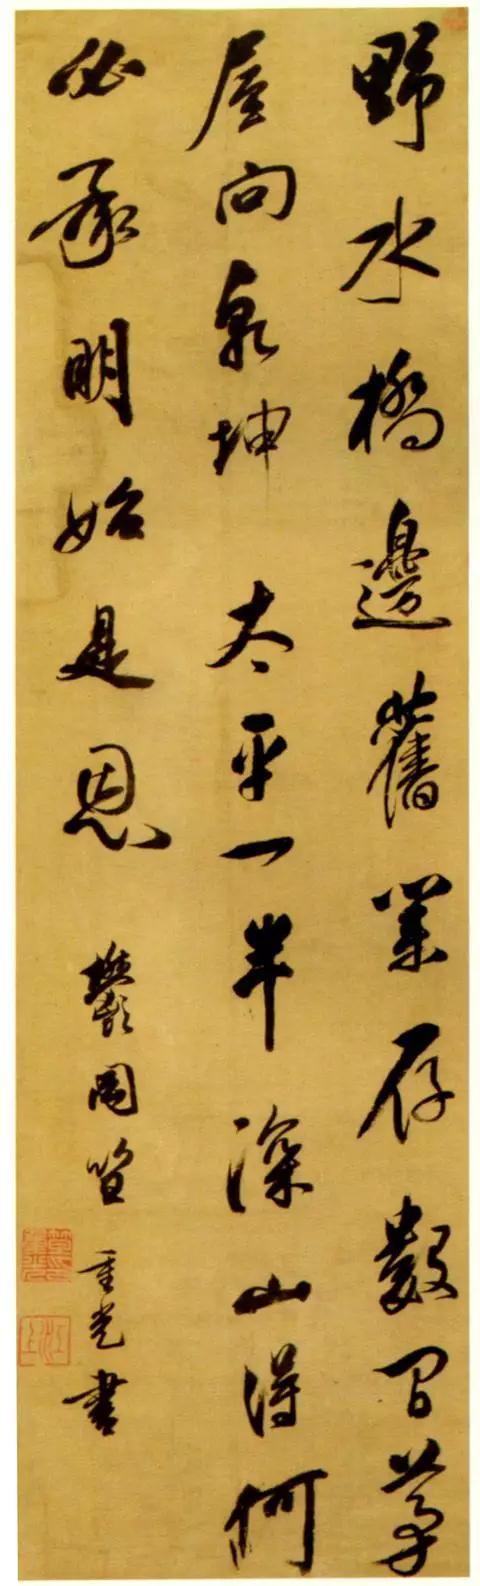 野水橋邊舊業存數間茅
屋向乾坤太平一半深山得何
必承明始是恩
鬱岡笪重光書
江上